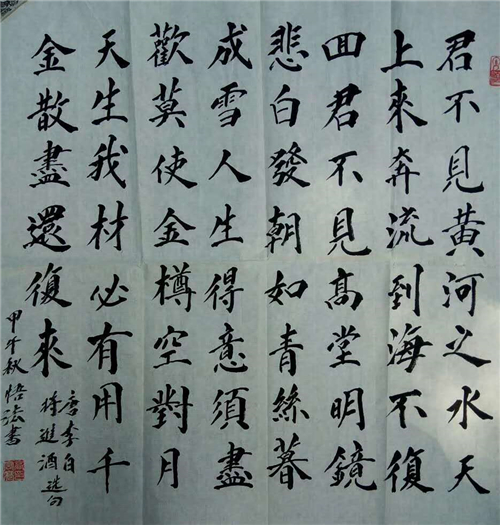 君不見黃河之水天
上來奔流到海不復
回君不見高堂明鏡
悲白發朝如青絲暮
成雪人生得意須盡
歡莫使金樽空對月
天生我材必有用千
金散盡還復來
唐李白
將進酒選句
甲午秋悟法書